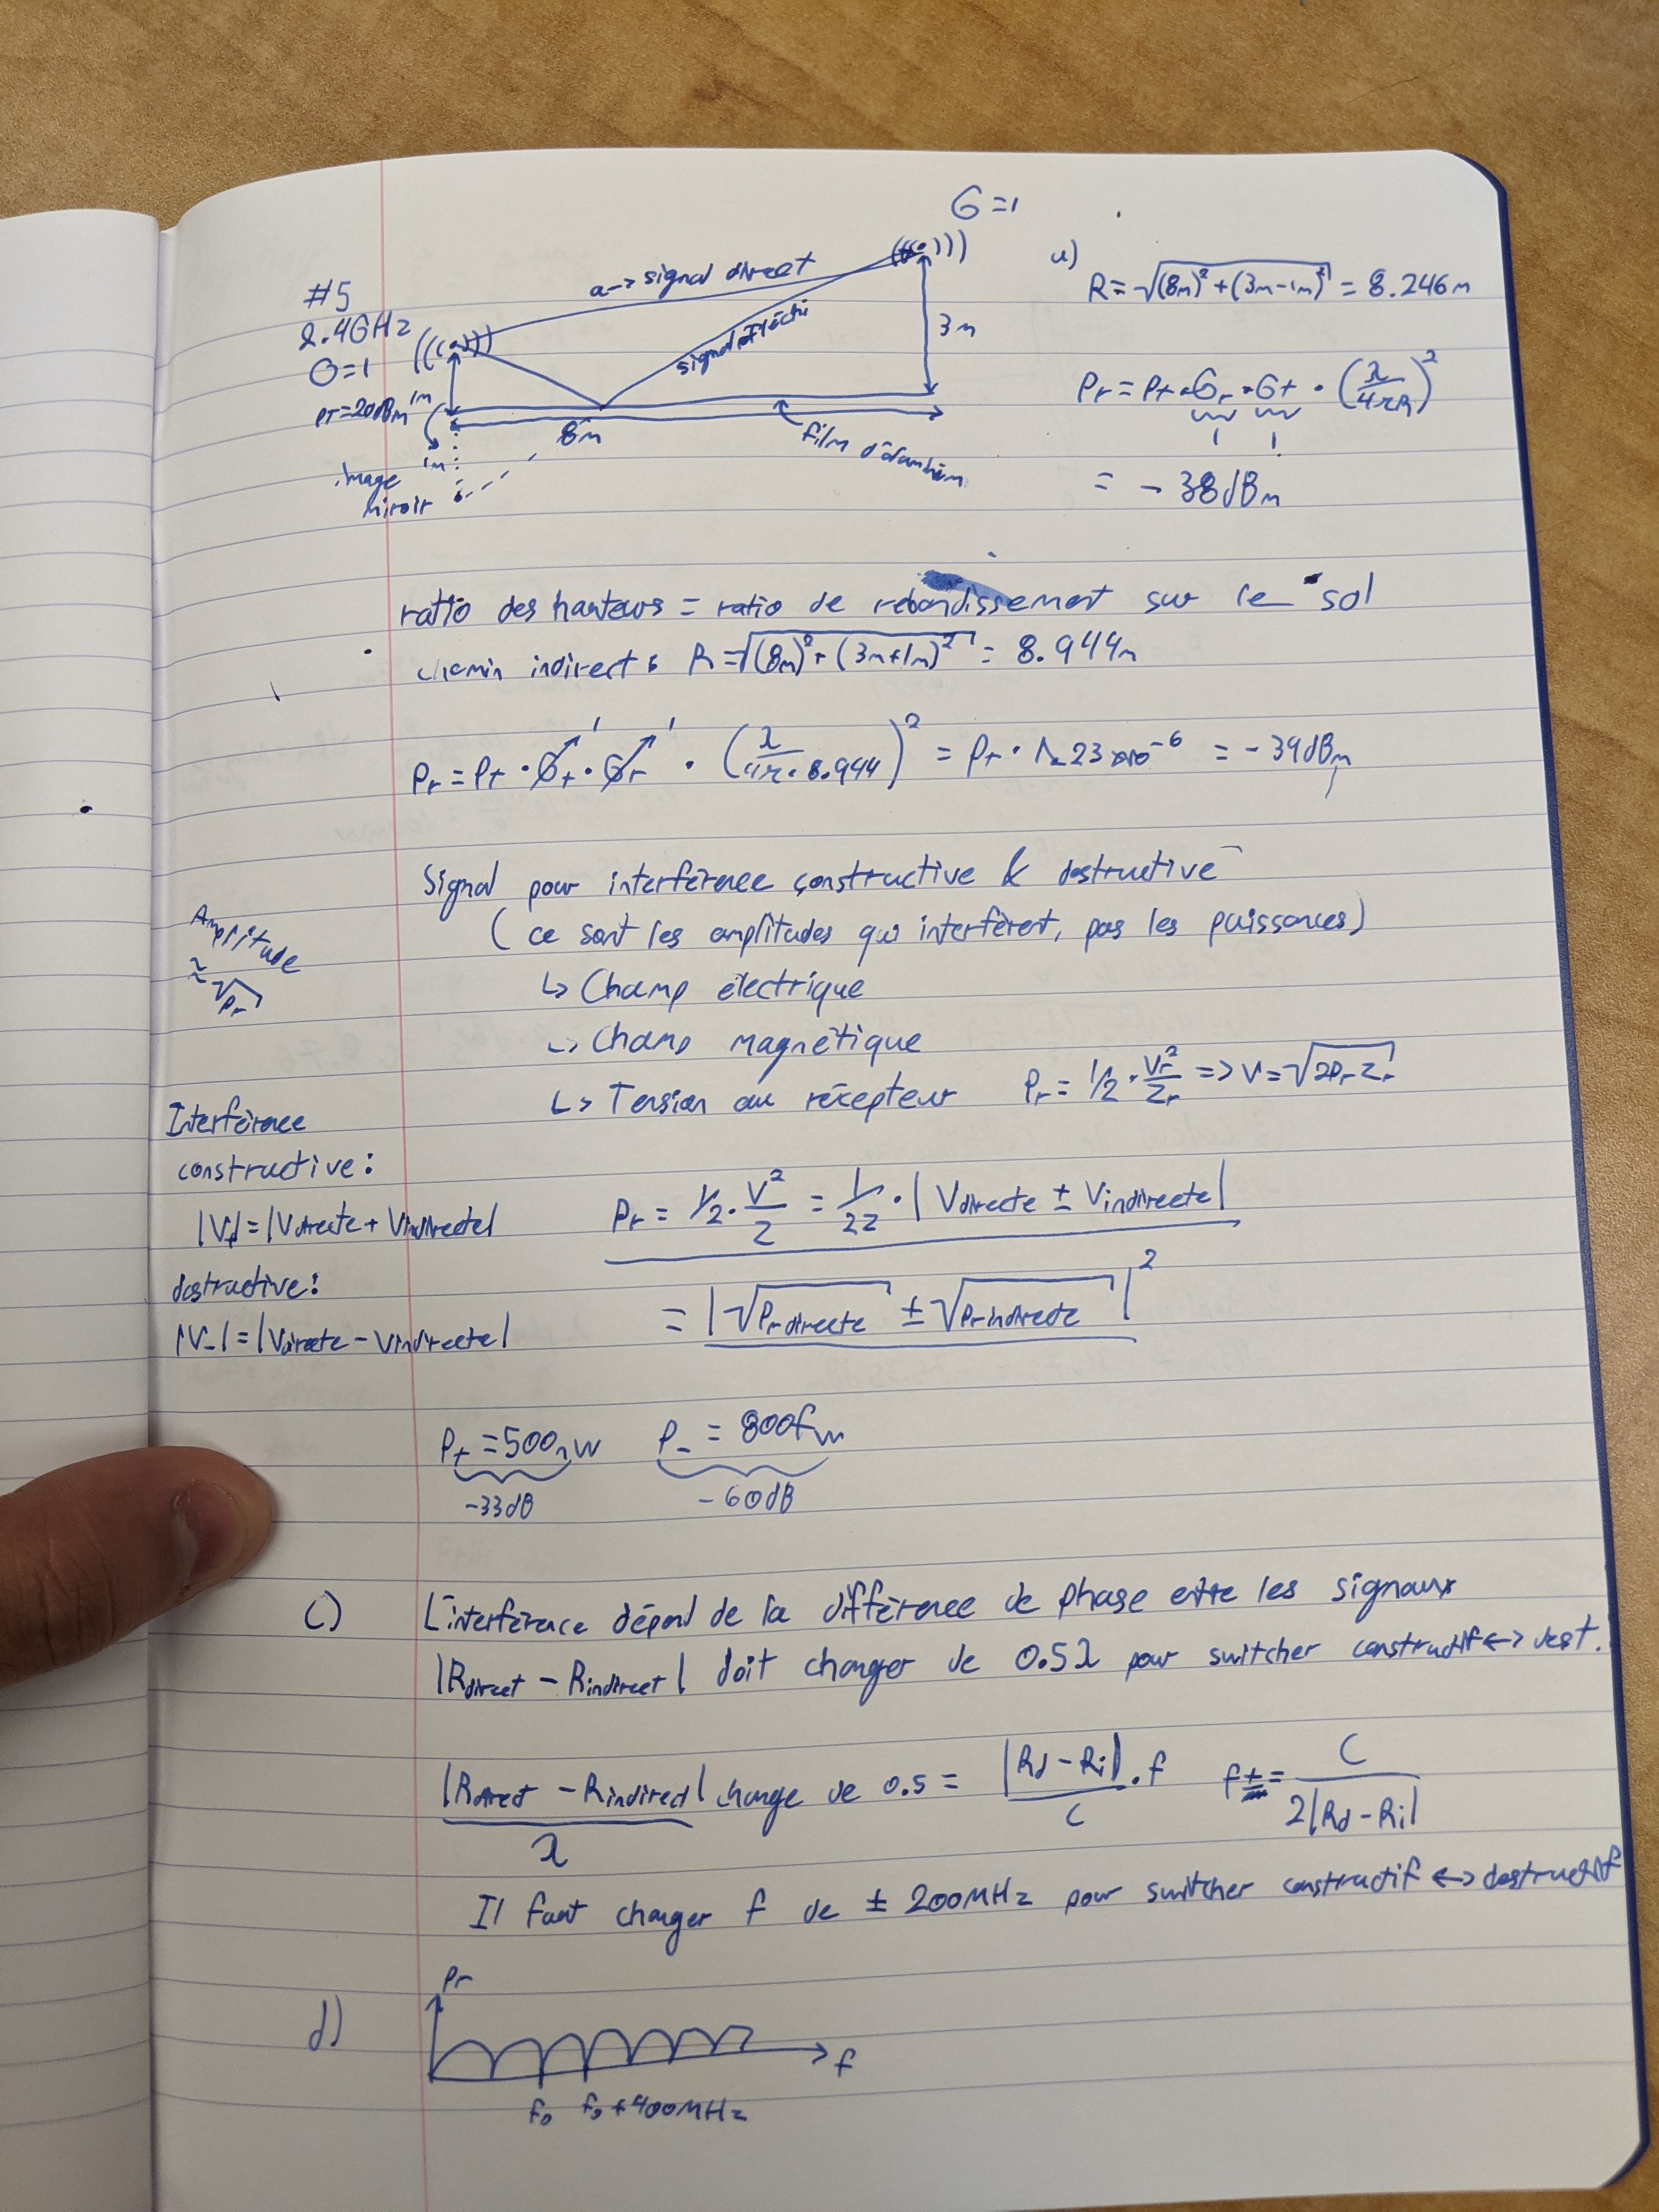 G=1
#5
2.4GHz
G=1
PT=20dBm
1m
a-> signal direct
signal réfléchi
3m
8m
film d'aluminium
image
miroir
1m
a)
R=√(8m)²+(3m-1m)² = 8.246m
Pr = Pt • Gr • Gt • (λ/4πR)²
1 1
= -38dBm
ratio des hauteurs = ratio de rebondissement sur le sol
chemin indirect : R=√(8m)²+(3m+1m)² = 8.944m
Pr = Pt • Gt • Gr • (λ/4π•8.944)² = Pt • 1.23x10⁻⁶ = -39dBm
1 1
Signal pour interférence constructive & destructive
(ce sont les amplitudes qui interfèrent, pas les puissances)
Amplitude
≈√Pr
↳ Champ électrique
↳ Champ magnétique
↳ Tension au récepteur Pr = 1/2 • Vr²/Zr => V=√2PrZr
Interférence
constructive:
|V+|=|Vdirecte + Vindirecte|
destructive:
|V-|=|Vdirecte - Vindirecte|
Pr = 1/2 • V²/Z = 1/2Z • |Vdirecte ± Vindirecte|
= |√Prdirecte ± √Prindirecte|²
P+ = 500nW P- = 800fW
-33dB -60dB
C) L'interférence dépend de la différence de phase entre les signaux
|Rdirect - Rindirect| doit changer de 0.5λ pour switcher constructif<->dest.
|Rdirect - Rindirect|/λ change de 0.5 = |Rd - Ri|/C • f f±= C/2|Rd - Ri|
Il faut changer f de ± 200MHz pour switcher constructif <-> destructif
d)
Pr
f
f₀ f₀+400MHz